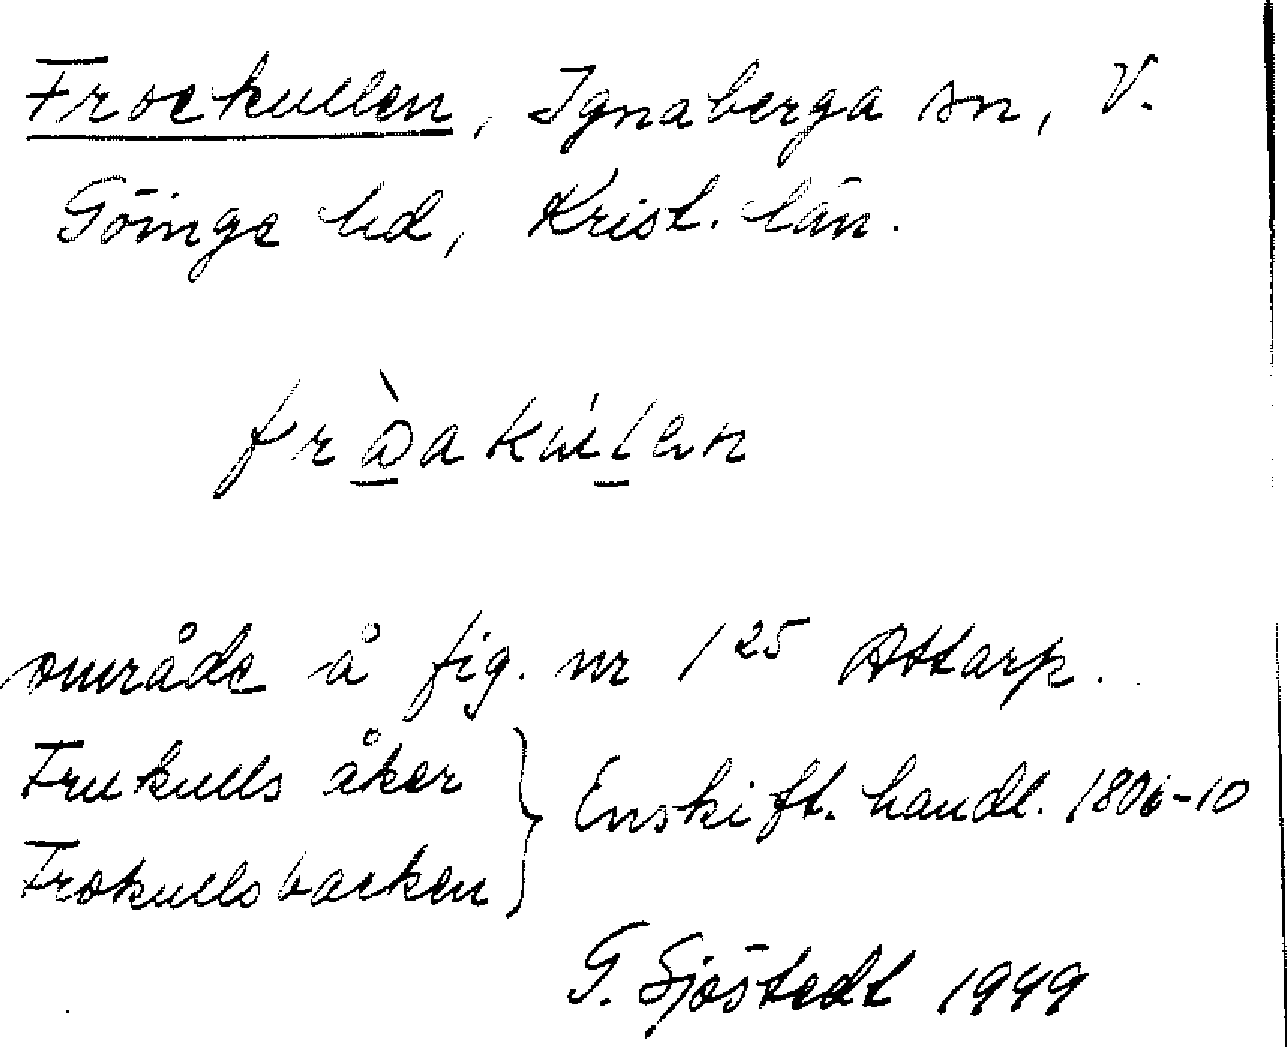 Froekullen, Ignaberga sn, V.
Göinge hd, Krist. län.
område å fig. nr 1²⁵ Attarp.
Frukulls åker } Enskift. handl. 1806-10
Frokullsbacken }
G. Sjöstedt 1949